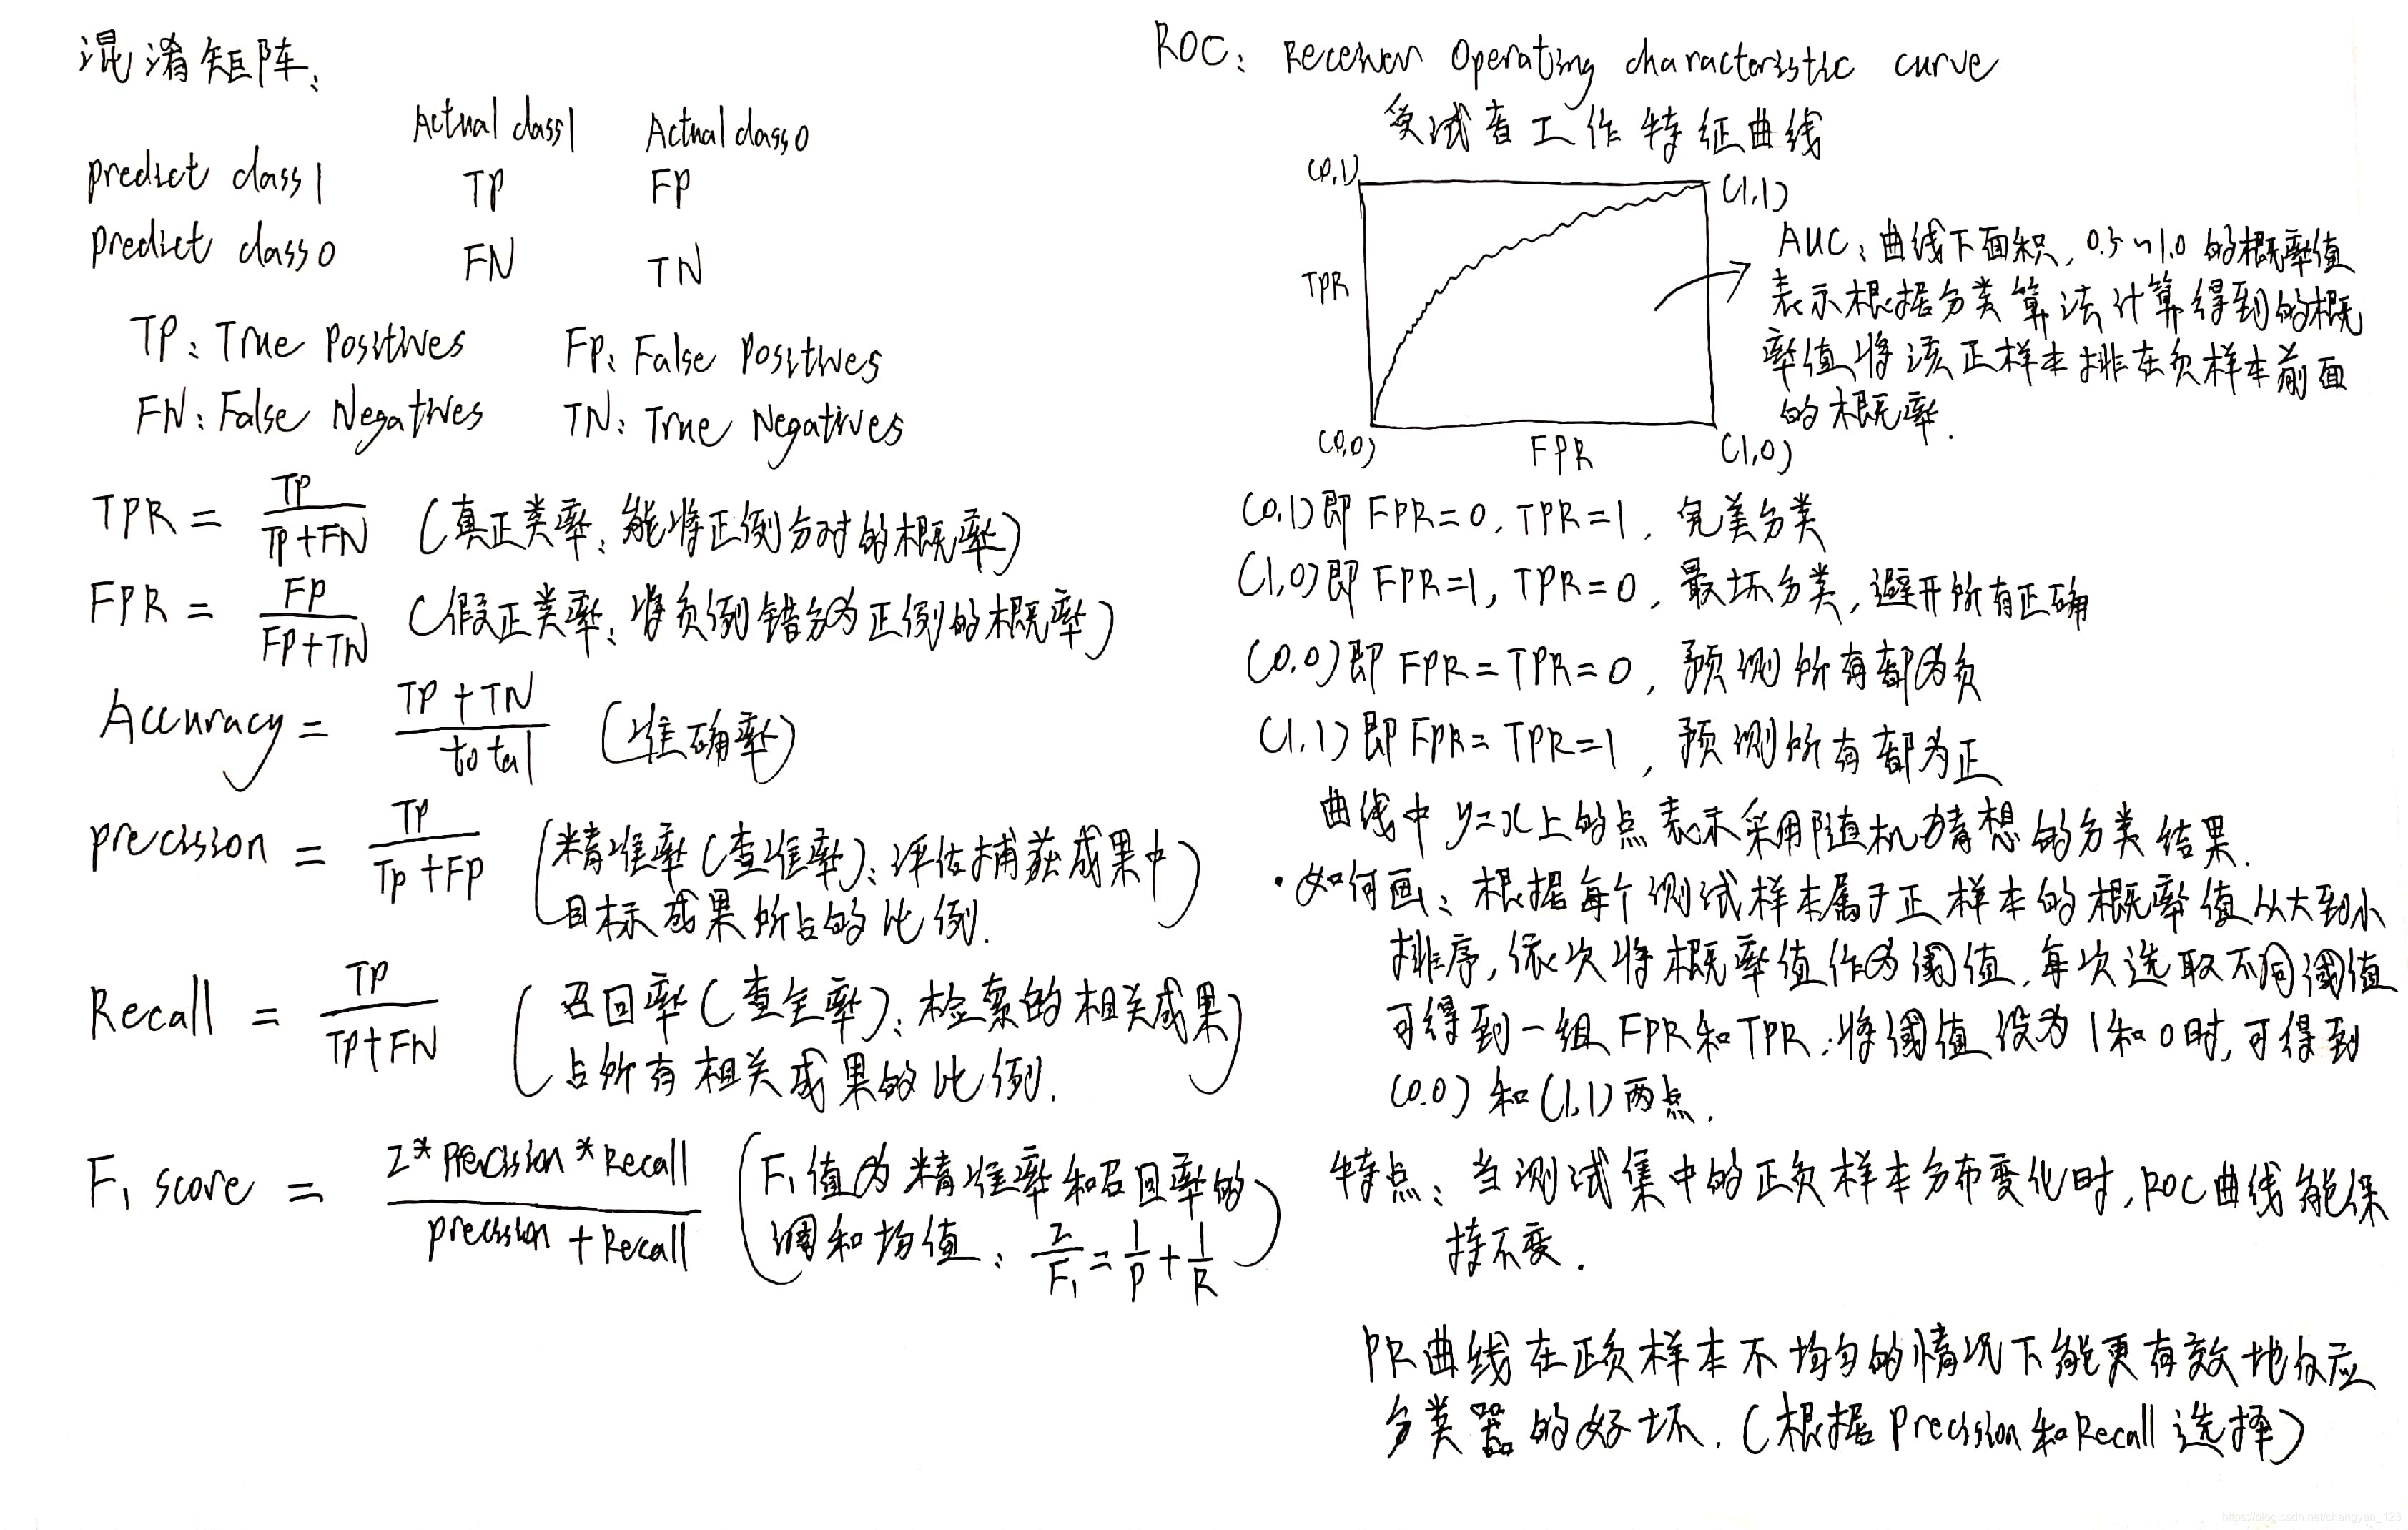 混淆矩阵:
Actual class1 Actual class0
predict class1 TP FP
predict class0 FN TN
TP: True Positives FP: False Positives
FN: False Negatives TN: True Negatives
TPR = TP/(TP+FN) (真正类率: 能将正例分对的概率)
FPR = FP/(FP+TN) (假正类率: 将负例错分为正例的概率)
Accuracy = (TP+TN)/total (准确率)
precision = TP/(TP+FP) (精准率(查准率): 评估捕获成果中
目标成果所占的比例.)
Recall = TP/(TP+FN) (召回率(查全率): 检索的相关成果
占所有相关成果的比例.)
F₁ score = (2*Precision*Recall)/(precision+Recall) (F₁值为精准率和召回率的
调和均值: 2/F₁ = 1/P + 1/R)
ROC: Receiver Operating characteristic curve
受试者工作特征曲线
(0,1) (1,1)
TPR
(0,0) FPR (1,0)
AUC: 曲线下面积, 0.5~1.0 的概率值
表示根据分类算法计算得到的概
率值将该正样本排在负样本前面
的概率.
(0,1)即 FPR=0, TPR=1, 完美分类
(1,0)即 FPR=1, TPR=0, 最坏分类, 避开所有正确
(0,0)即 FPR=TPR=0, 预测所有都为负
(1,1)即 FPR=TPR=1, 预测所有都为正
曲线中 y=x上的点表示采用随机猜想的分类结果.
·如何画: 根据每个测试样本属于正样本的概率值从大到小
排序, 依次将概率值作为阈值, 每次选取不同阈值
可得到一组 FPR和TPR, 将阈值设为1和0时, 可得到
(0,0) 和(1,1)两点.
特点: 当测试集中的正负样本分布变化时, ROC曲线能保
持不变.
PR曲线在正负样本不均匀的情况下能更有效地反应
分类器的好坏. (根据Precision和Recall选择)
https://blog.csdn.net/changyan_123